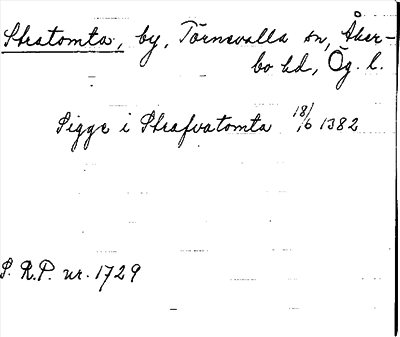 Skratomta, by, Törnevalla sn, Åker-
bo hd, Ög. l.
Sigge i Skrafvatomta 18/6 1382
S. R.P. nr. 1729